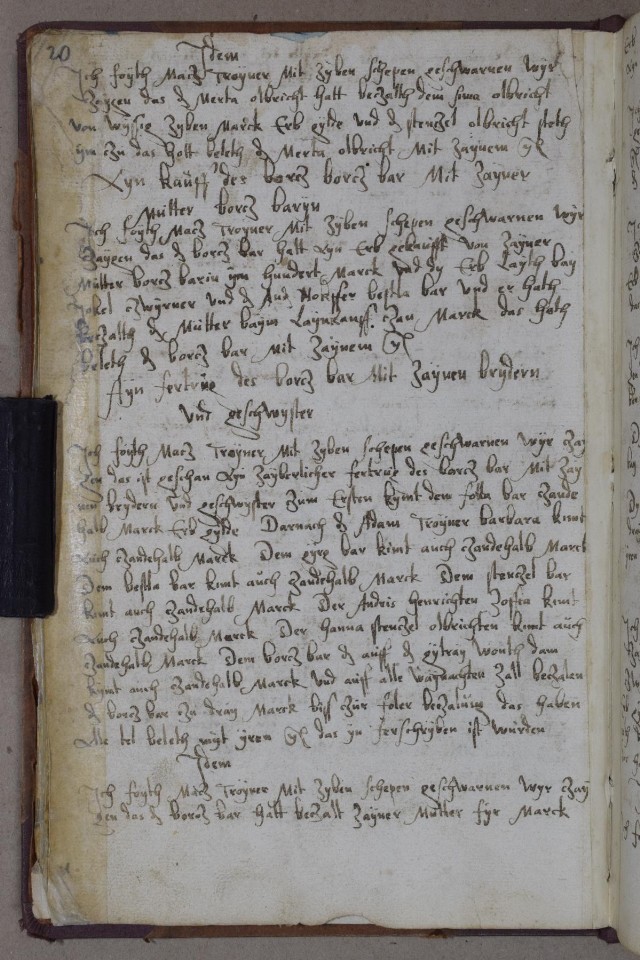 20
Idem
Ich foÿth Macz Troÿner Mit zÿben schepen geschwarnen Wÿr
Zaÿgen das d Merta olbricht hatt beczalth dem simo olbricht
von wÿssig zÿben Marck Erb gelde und d stenczel olbricht steth
ÿm czu das hott beleth d Merta olbricht Mit Zaÿnem
Aÿn kauff des borcz borcz bar Mit Zaÿner
Mutter borcz barÿn
Ich foÿth Macz Troÿner Mit zÿben schepen geschwarnen Wÿr
Zaÿgen das d borcz bar hatt Aÿn Erb gekaufft von Zaÿner
Mutter borcz barin ÿm hundert Marck und dÿ Erb Layth baÿ
Jokel czwÿrner und d And bestla bar und er hoth
beczalth der Mutter baÿm Laÿnkauff czan Marck das hoth
beleth d borcz bar Mit Zaÿnem
Aÿn fertrug des borcz bar Mit Zaÿnen brÿdern
und geschwÿster
Ich foÿth Macz Troÿner Mit zÿben schepen geschwarnen Wÿr Zaÿ
gen das ist geschan Aÿn Zaÿberlicher fertrug des borcz bar Mit Zaÿ
nen brÿdern und geschwÿster Zum Ersten kÿmt dem folta bar czande
halb Marck Erb gelde Darnach d Adam Troÿner barbara kimt
auch czandehalb Marck Dem gÿrg bar kimt auch czandehalb Marck
Dem bestla bar kimt auch Zandehalb Marck Dem stenczel bar
kimt auch Zandehalb Marck Der Andris henrichten Zofia kimt
auch Zandehalb Marck Der hanna stenczel olbrichten kimt auch
Zandehalb Marck Dem borcz bar d auff d gÿtraÿ wonth dam
kÿmt auch Zandehalb Marck und auff alle Waÿnachten Zall beczalen
d borcz bar czu draÿ Marck biss czur foler beczalung das haben
Alle tel beleth mÿt ÿrem das ÿn ferschrÿben ist wurden
Idem
Ich foÿth Macz Troÿner Mit zÿben schepen geschwarnen Wÿr Zaÿ
gen das d borcz bar hatt beczalt Zaÿner Mutter fÿr Marck